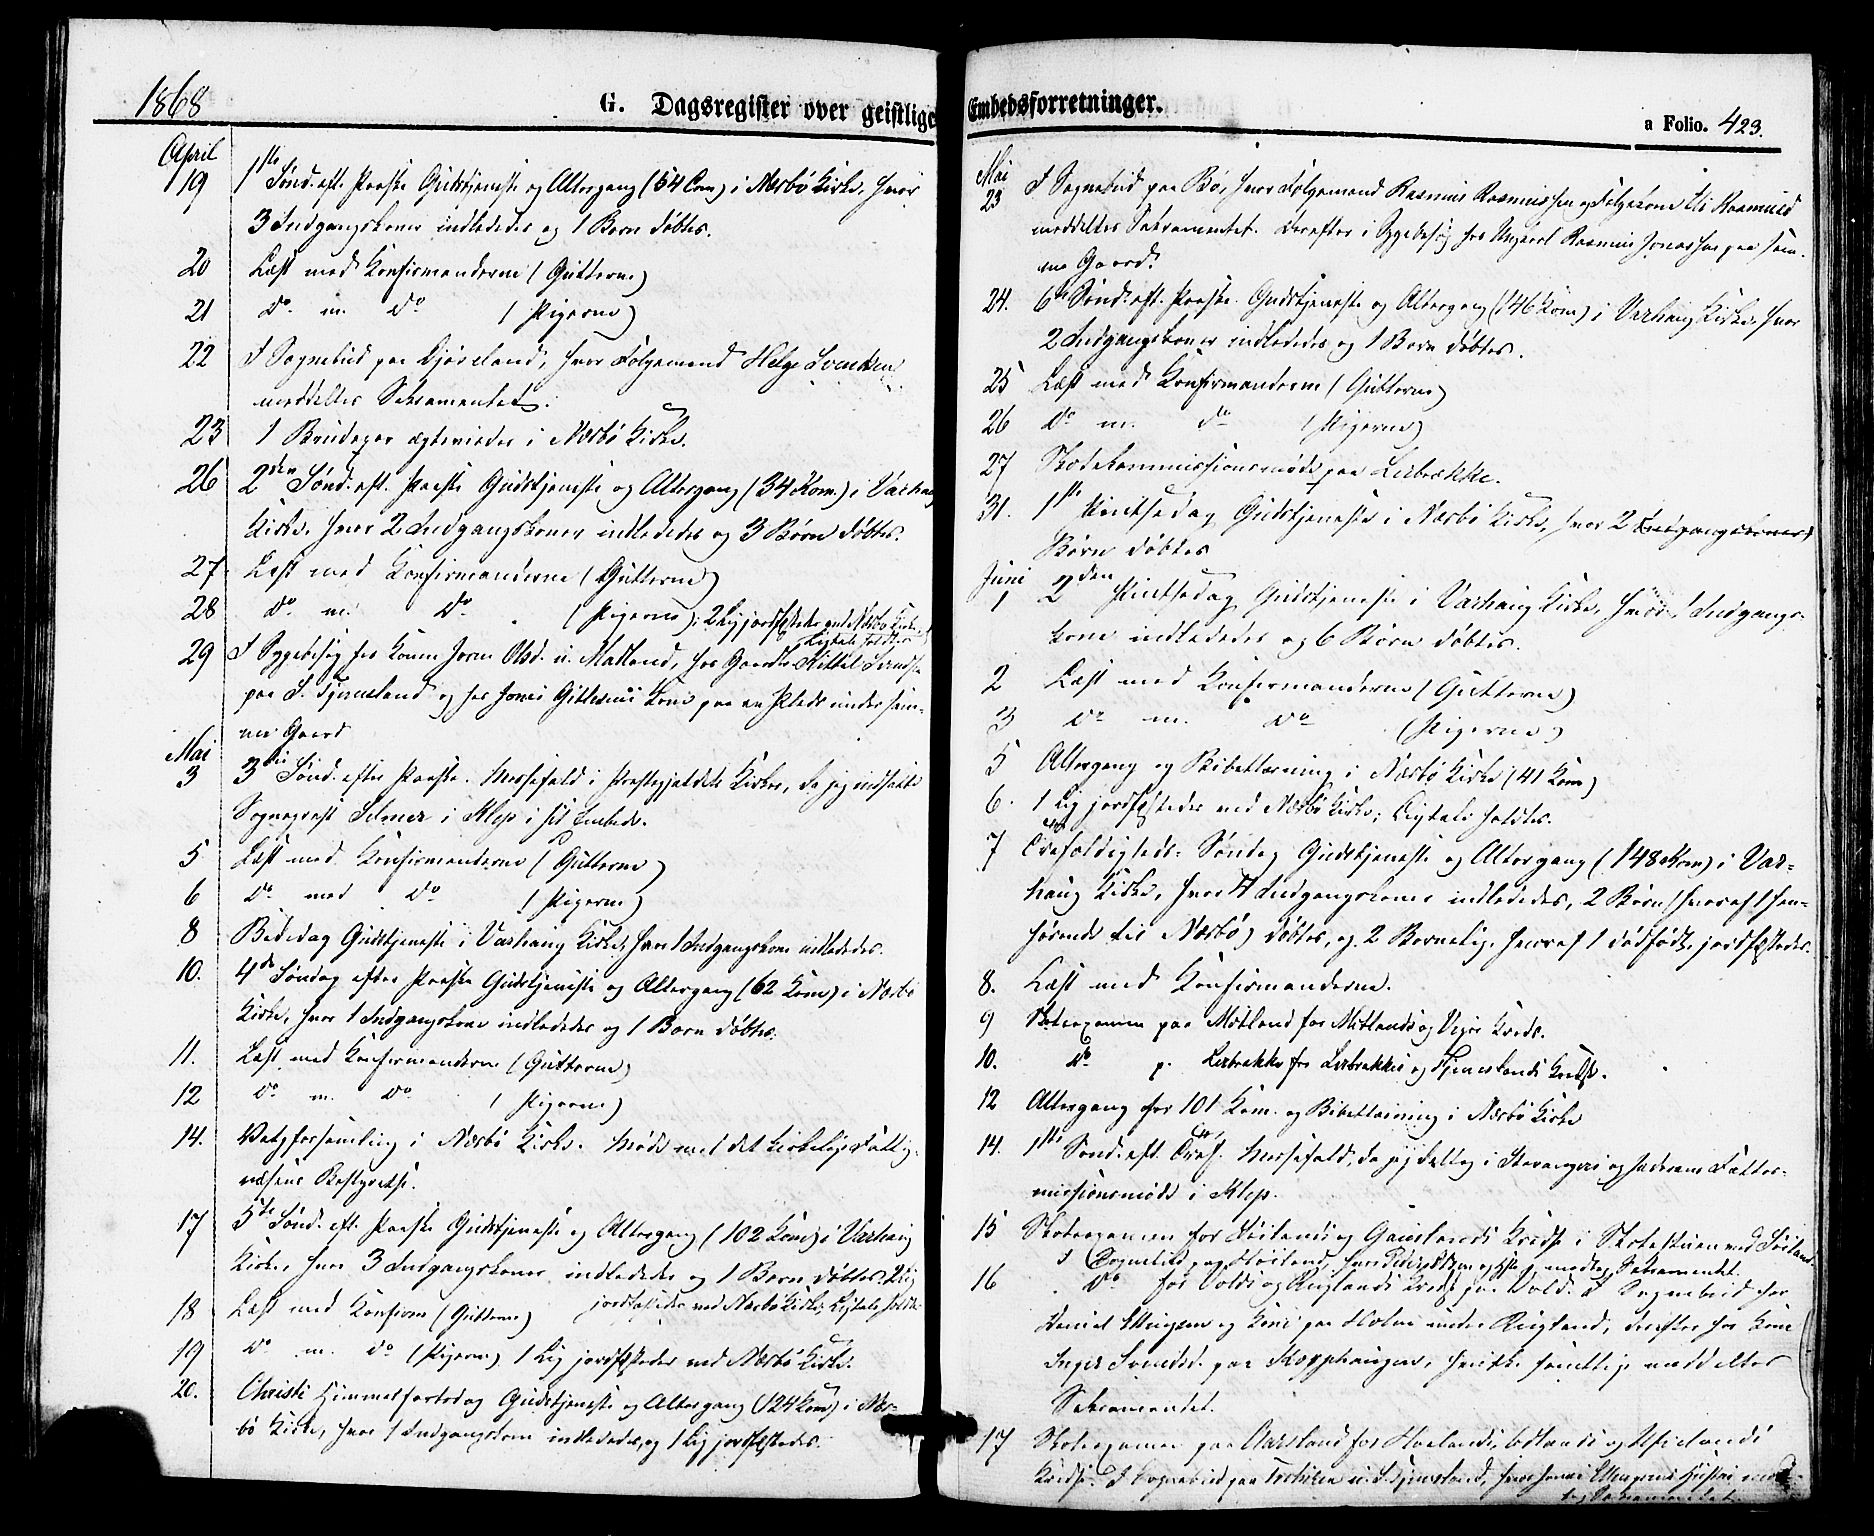 1868
G. Dagsregister over geistlige
April
19 1ste Sønd. eft. Paaske Gudstjeneste og Altergang (54 Com) i Nærbø Kirke, hvor
3 Indgangskoner indlededes og 1 Barn døbtes.
20 Læst med Konfirmanderne (Gutterne)
21 do. m. do (Pigerne)
22 I Sognebud paa hvor Folgemand Helge Svendsen
meddeltes Sakramentet.
23 1 Brudepar ægteviedes i Nærbø Kirke.
26 2den Sønd. eft. Paaske Gudstjeneste og Altergang (34 Kom.) i Varhaug
Kirke, hvor 2 Indgangskoner indlededes og 3 Børn døbtes.
27 Læst med Konfirmanderne (Gutterne)
28 do. m. do (Pigerne); 2 Lig jordfæstedes ved Nærbø Kirke,
Ligtale holdtes
29 I Sygebesøg hos Konen Olsd. u. Matland, hos Gaardbr. Kittel Svends.
paa S. Tjemsland og hos Kone paa en Plads under sam-
me Gaard
Mai
3 3die Sønd. efter Paaske. Messefald i Præstegjældets Kirker, da jeg indsatte
Sognepræst Selmer i Klep i sit Embede.
5 Læst med Konfirmanderne (Gutterne)
6 do. med do (Pigerne)
8 Bededag Gudstjeneste i Varhaug Kirke, hvor 1 Indgangskone indlededes.
10. 4de Søndag efter Paaske Gudstjeneste og Altergang (62 Kom) i Nærbø
Kirke, hvor 1 Indgangskone indlededes og 1 Barn døbtes.
11. Læst med Konfirmanderne (Gutterne)
12 do. m. do. (Pigerne)
14. Valgforsamling i Nærbø Kirke. Møde med det kirkelige Fattig-
væsens Bestyrelse.
17 5te Sønd. eft. Paaske Gudstjeneste og Altergang (102 Kom) i Varhaug
Kirke, hvor 3 Indgangskoner indlededes og 1 Barn døbtes. 2 Lig
jordfæstedes ved Nærbø Kirke, Ligtale holdtes
18 Læst med Konfirm (Gutterne)
19 do. m. do (Pigerne) 1 Lig jordfæstedes ved Nærbø Kirke.
20. Christi Himmelfartsdag Gudstjeneste og Altergang (124 Kom) i Nær-
bø Kirke, hvor 1 Indgangskone indlededes, og 1 Lig jordfæstedes.
Embedsforretninger.
a Folio. 423.
Mai
23 I Sognebud paa Bø, hvor Folgemand Rasmus Rasmussen og Folgekone Rasmusd
meddeltes Sakramentet. Derefter i Sygebesøg hos Ungkarl Rasmus Jonassen paa sam-
me Gaard.
24. 6te Sønd. eft. Paaske. Gudstjeneste og Altergang (146 Kom) i Varhaug Kirke, hvor
2 Indgangskoner indlededes og 1 Barn døbtes.
25 Læst med Konfirmanderne (Gutterne)
26 do m. do (Pigerne)
27 Skolekommissionsmøde paa Lerbrække.
31. 1ste Pintsedag Gudstjeneste i Nærbø Kirke, hvor 2 Indgangskoner
Børn døbtes
Juni
1 2den Pintsedag Gudstjeneste i Varhaug Kirke, hvor 1 Indgangs-
kone indlededes og 6 Børn døbtes.
2 Læst med Konfirmanderne (Gutterne)
3 do m. do (Pigerne)
5 Altergang og Bibellæsning i Nærbø Kirke (41 Kom)
6. 1 Lig jordfæstedes ved Nærbø Kirke; Ligtale holdtes.
7 Trefoldigheds-Søndag Gudstjeneste og Altergang (148 Kom) i Var-
haug Kirke, hvor 4 Indgangskoner indlededes, 2 Børn (hvoraf 1 hen-
hørende til Nærbø) døbtes, og 2 Barnelig, hvoraf 1 dødfødt, jordfæstedes.
8. Læst med Konfirmanderne.
9 Skoleexamen paa Motland for Motlands og Kreds.
10. do p. Lerbrække for Lerbrække og Tjemslands Kreds.
12 Altergang for 101 Kom. og Bibellæsning i Nærbø Kirke
14. 1ste Sønd. eft. Tref. Messefald, da jeg deltog i Stavanger og Jæderens Fælles-
missionsmøde i Klep.
15 Skoleexamen for og Kreds i Skolestuen ved
I Sognebud paa Høiland, Sakramentet.
16 do for Volds og Ruglands Kreds paa Vold. I Sognebud hos
og Kone paa Holen under Rugland, derefter hos Kone
Inger Svendsd. paa Kopphaugen, hvilke samtlige meddeltes
Sakramentet.
17 Skoleexamen paa Aarsland for Hoelands, og
Kreds. I Sognebud paa u. S. Tjemsland, hvor Hustru mod-
tog Sakramentet.